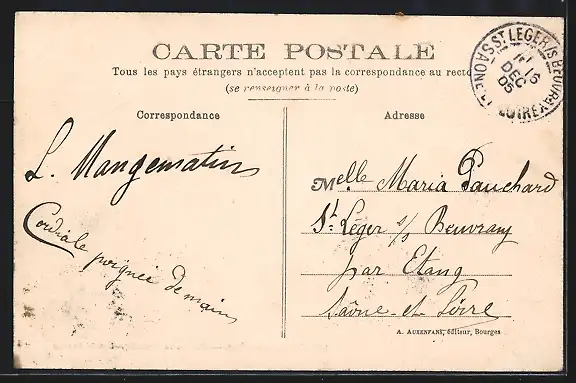 CARTE POSTALE
Tous les pays étrangers n'acceptent pas la correspondance au recto
(se renseigner à la poste)
ST LEGER/S BEUVRAY
16
DEC
05
SAONE-ET-LOIRE
Correspondance
Adresse
L. Mangematin
Cordiale poignée de main
Melle Maria Pauchard
St. Léger s/s Beuvray
par Etang
Saône-et-Loire
A. AUXENFANS, éditeur, Bourges